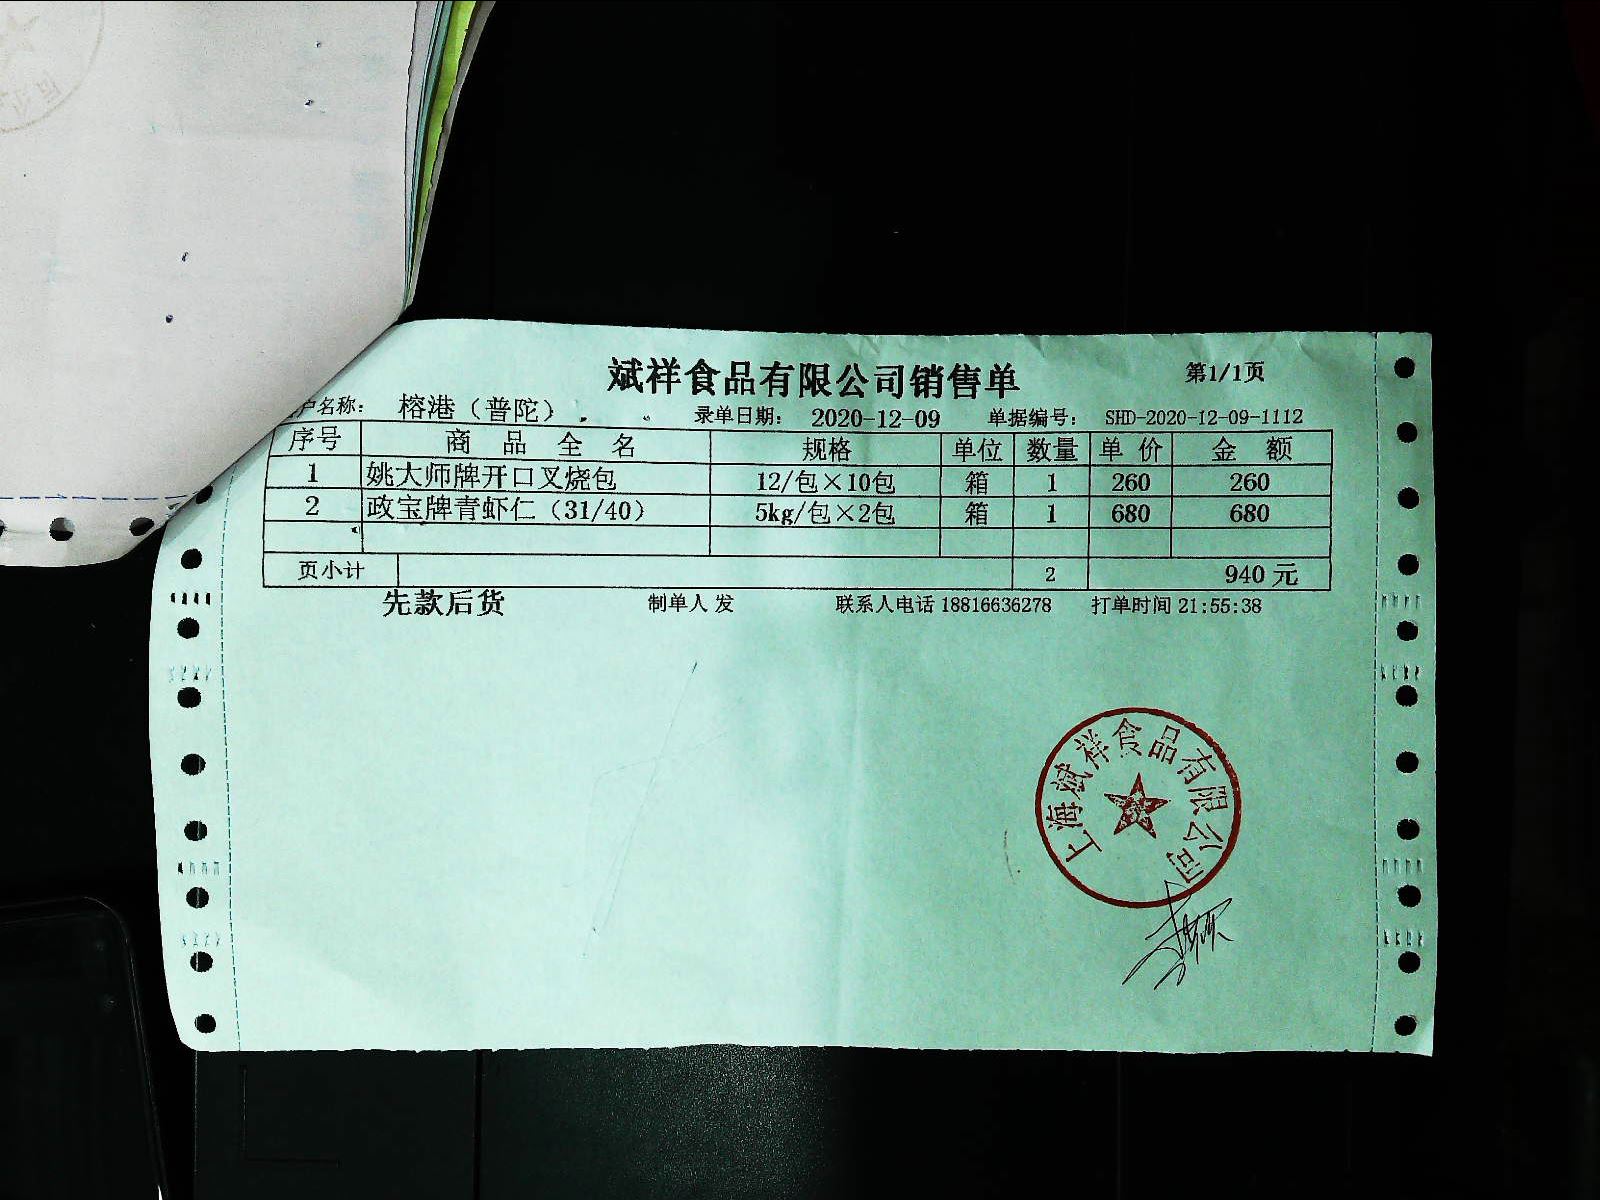 斌祥食品有限公司销售单 第1/1页
户名称： 榕港（普陀） 录单日期： 2020-12-09 单据编号： SHD-2020-12-09-1112
序号 商 品 全 名 规格 单位 数量 单 价 金 额
1 姚大师牌开口叉烧包 12/包×10包 箱 1 260 260
2 政宝牌青虾仁（31/40） 5kg/包×2包 箱 1 680 680
页小计 2 940 元
先款后货 制单人 发 联系人电话 18816636278 打单时间 21:55:38
上海斌祥食品有限公司